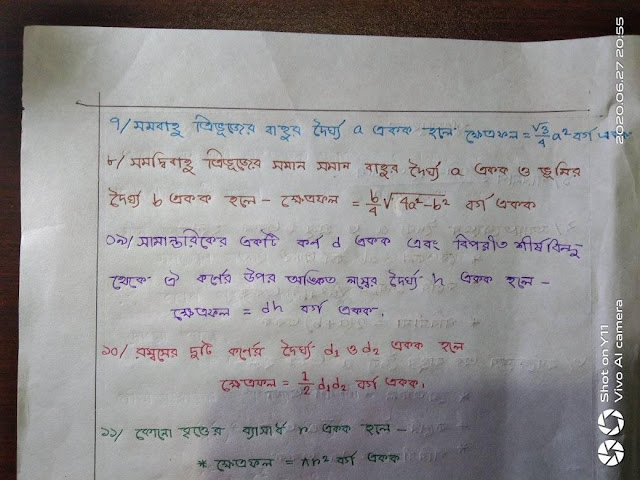 ৭/ সমবাহু ত্রিভুজের বাহুর দৈর্ঘ্য a একক হলে ক্ষেত্রফল = √3/4 a² বর্গ একক
৮/ সমদ্বিবাহু ত্রিভুজের সমান সমান বাহুর দৈর্ঘ্য a একক ও ভূমির
দৈর্ঘ্য b একক হলে – ক্ষেত্রফল = b/4 √4a²-b² বর্গ একক
০৯/ সামান্তরিকের একটি কর্ন d একক এবং বিপরীত শীর্ষবিন্দু
থেকে ঐ কর্নের উপর অঙ্কিত লম্বের দৈর্ঘ্য h একক হলে –
ক্ষেত্রফল = dh বর্গ একক।
১০/ রম্বসের দুটি কর্নের দৈর্ঘ্য d₁ ও d₂ একক হলে
ক্ষেত্রফল = 1/2 d₁d₂ বর্গ একক।
১১/ কোনো বৃত্তের ব্যাসার্ধ r একক হলে –
* ক্ষেত্রফল = πr² বর্গ একক
Shot on Y11
Vivo AI camera
2020.06.27 20:55